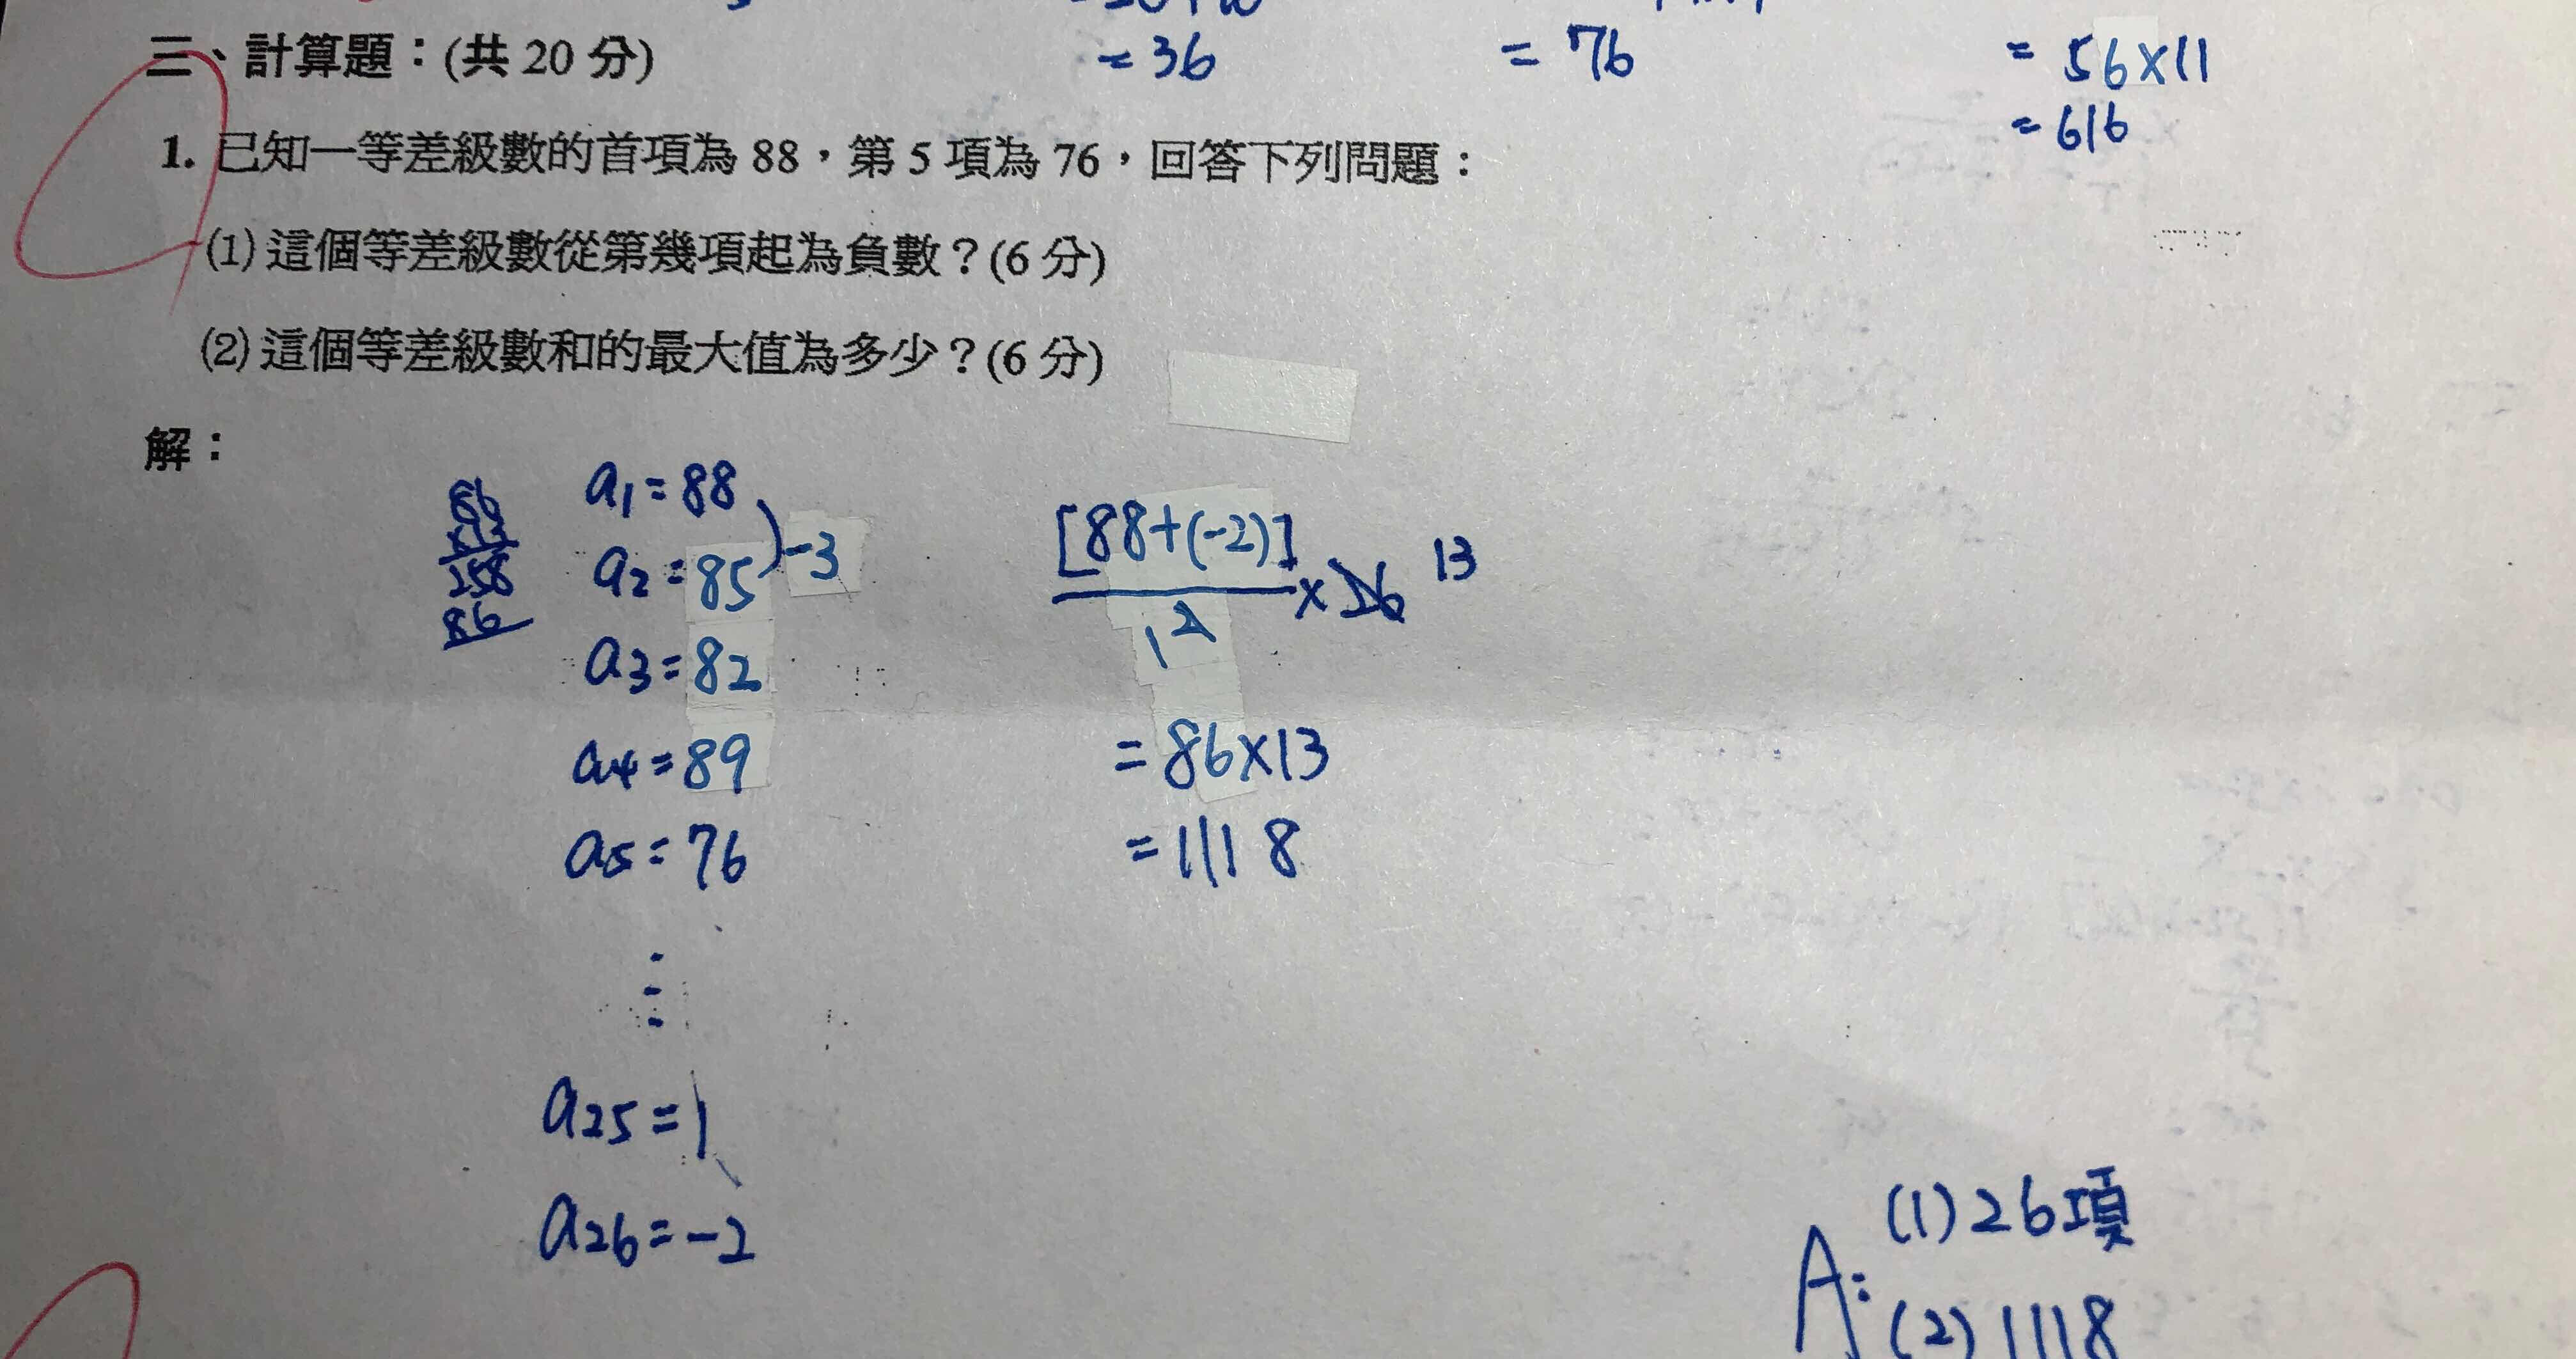 = 36
= 76
= 56×11
= 616
三、計算題：(共 20 分)
1. 已知一等差級數的首項為 88，第 5 項為 76，回答下列問題：
(1) 這個等差級數從第幾項起為負數？(6 分)
(2) 這個等差級數和的最大值為多少？(6 分)
解：
86
×13
258
86
a1=88
a2=85 )-3
a3=82
a4=89
a5=76
⋮
a25=1
a26=-2
[88+(-2)]
2 ×26 13
1
=86×13
=1118
A: (1) 26項
(2) 1118